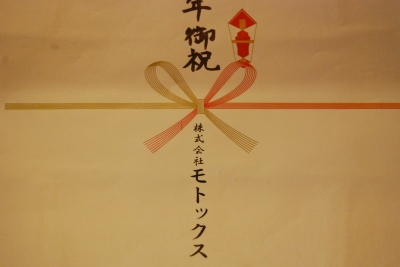 年御祝
株式会社モトックス